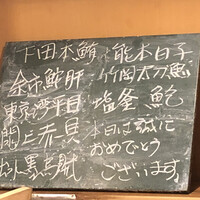 下田本鮪
余市鮟肝
東京湾平目
閖上赤貝
出水墨烏賊
熊本白子
竹岡太刀魚
塩釜鮑
本日は誠に
おめでとう
ございます